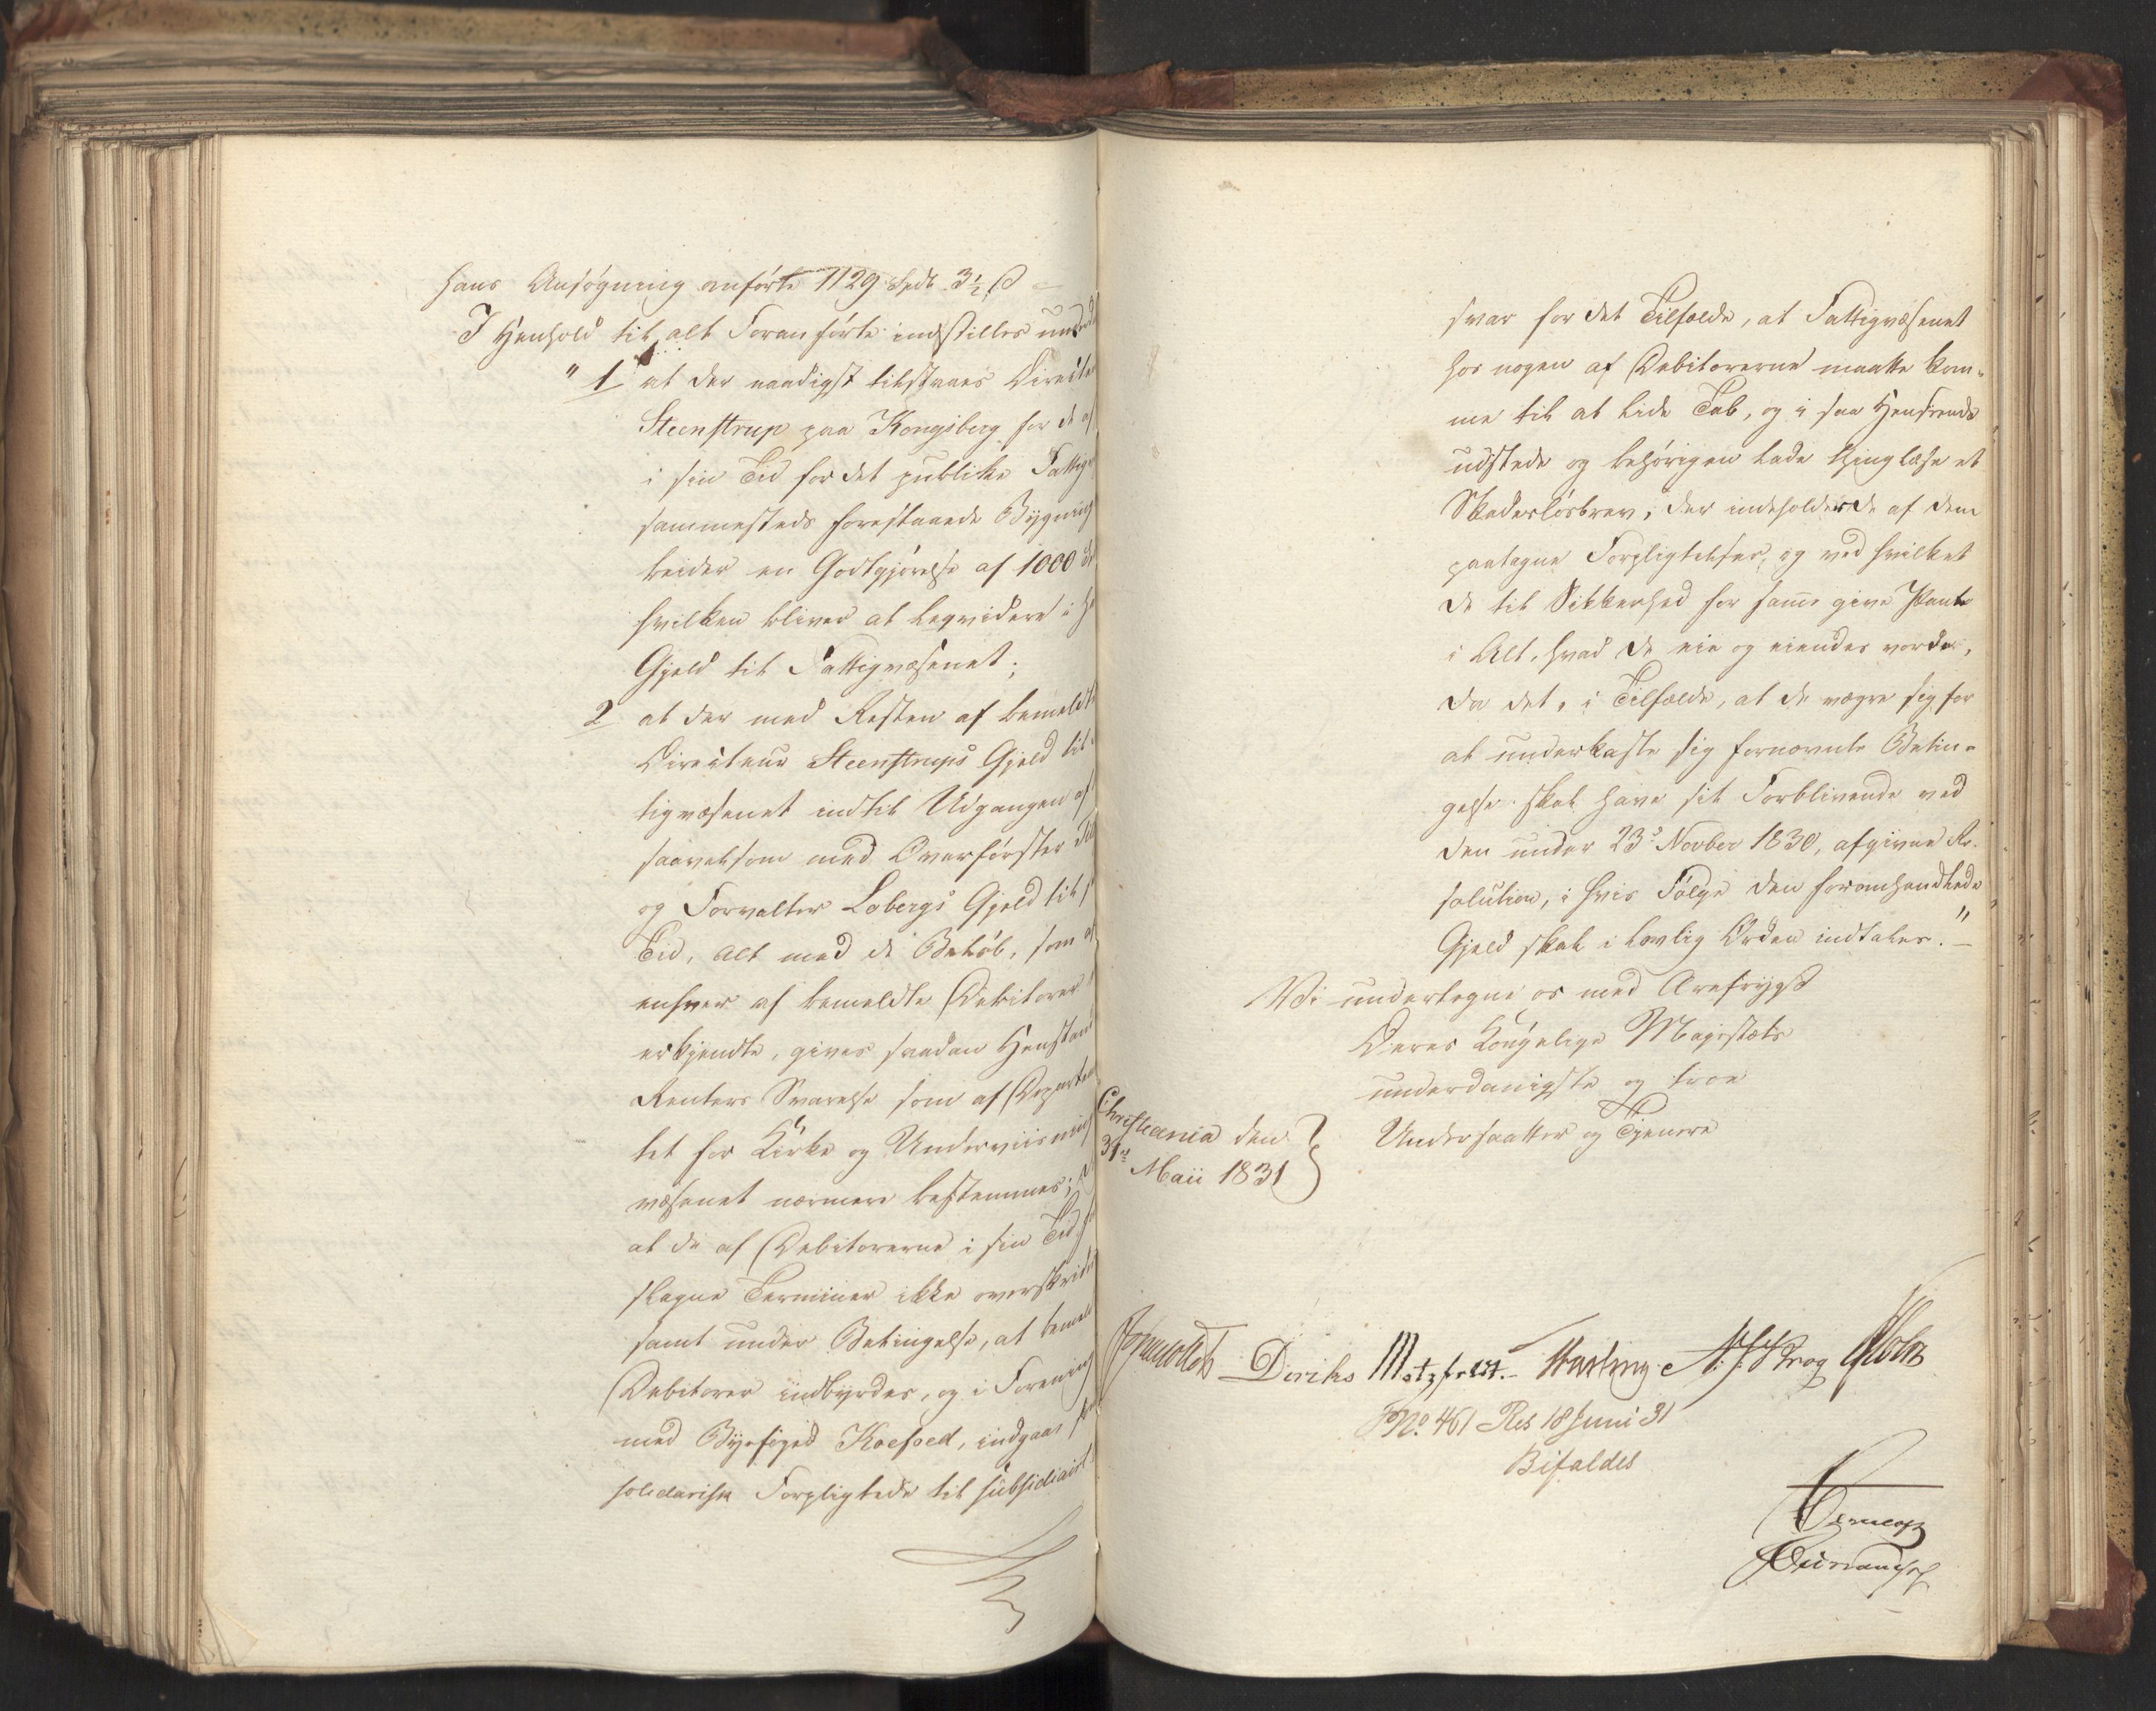 hans Ansøgning anførte 1129 Spdr 3½ ß
I Henhold til alt Foranførte indstilles
" 1 at der naadigst tilstaaes Directeur
Steenstrup paa Kongsberg for de af
i sin Tid for det publike Fattig
sammesteds forestaaede Bygning
beider en Godtgjørelse af 1000
hvilken bliver at leqvidere i
Gjeld til Fattigvæsenet;
2 at der med Resten af bemeldte
Directeur Steenstrups Gjeld til
tigvæsenet indtil Udgangen af
saavelsom med Overførster
og Forvalter Lobergs Gjeld til
Tid, alt med de Beløb, som af
enhver af bemeldte Debitorer
erkjendte, gives saadan Henstand
Renters Svarelse som af Departe
tet for Kirke og Underviisnings
væsenet nærmere bestemmes;
at de af Debitorerne i sin Tid
slagne Terminer ikke overskride
samt under Betingelse, at bemel
Debitorer indbyrdes, og i Forening
med Byefoged Koefoed, indgaar
solidarisk Forpligtede til subsidiairt
svar for det Tilfælde, at Fattigvæsenet
hos nogen af Debitorerne maatte kom-
me til at lide Tab, og i saa Henseende
udstede og behørigen lade thinglæse et
Skadesløsbrev, der indeholder de af dem
paatagne Forpligtelser, og ved hvilket
de til Sikkerhed for samme give Pant
i Alt, hvad de eie og eiendes vorder,
da det, i Tilfælde, at de vægre sig for
at underkaste sig fornævnte Betin-
gelse skal have sit Forblivende ved
den under 23de Novber 1830, afgivne Re-
solution, i hvis Følge den foromhandlede
Gjeld skal i lovlig Orden indtales." -
Vi undertegne os med Ærefrygt
Deres Kongelige Majestæts
underdanigste og troe
Christiania den
31te Maii 1831
Undersaatter og Tjenere
Diriks Motzfeldt. N. J. S. Krog Holst
P No. 461 Res 18 Juni 31
Bifaldes